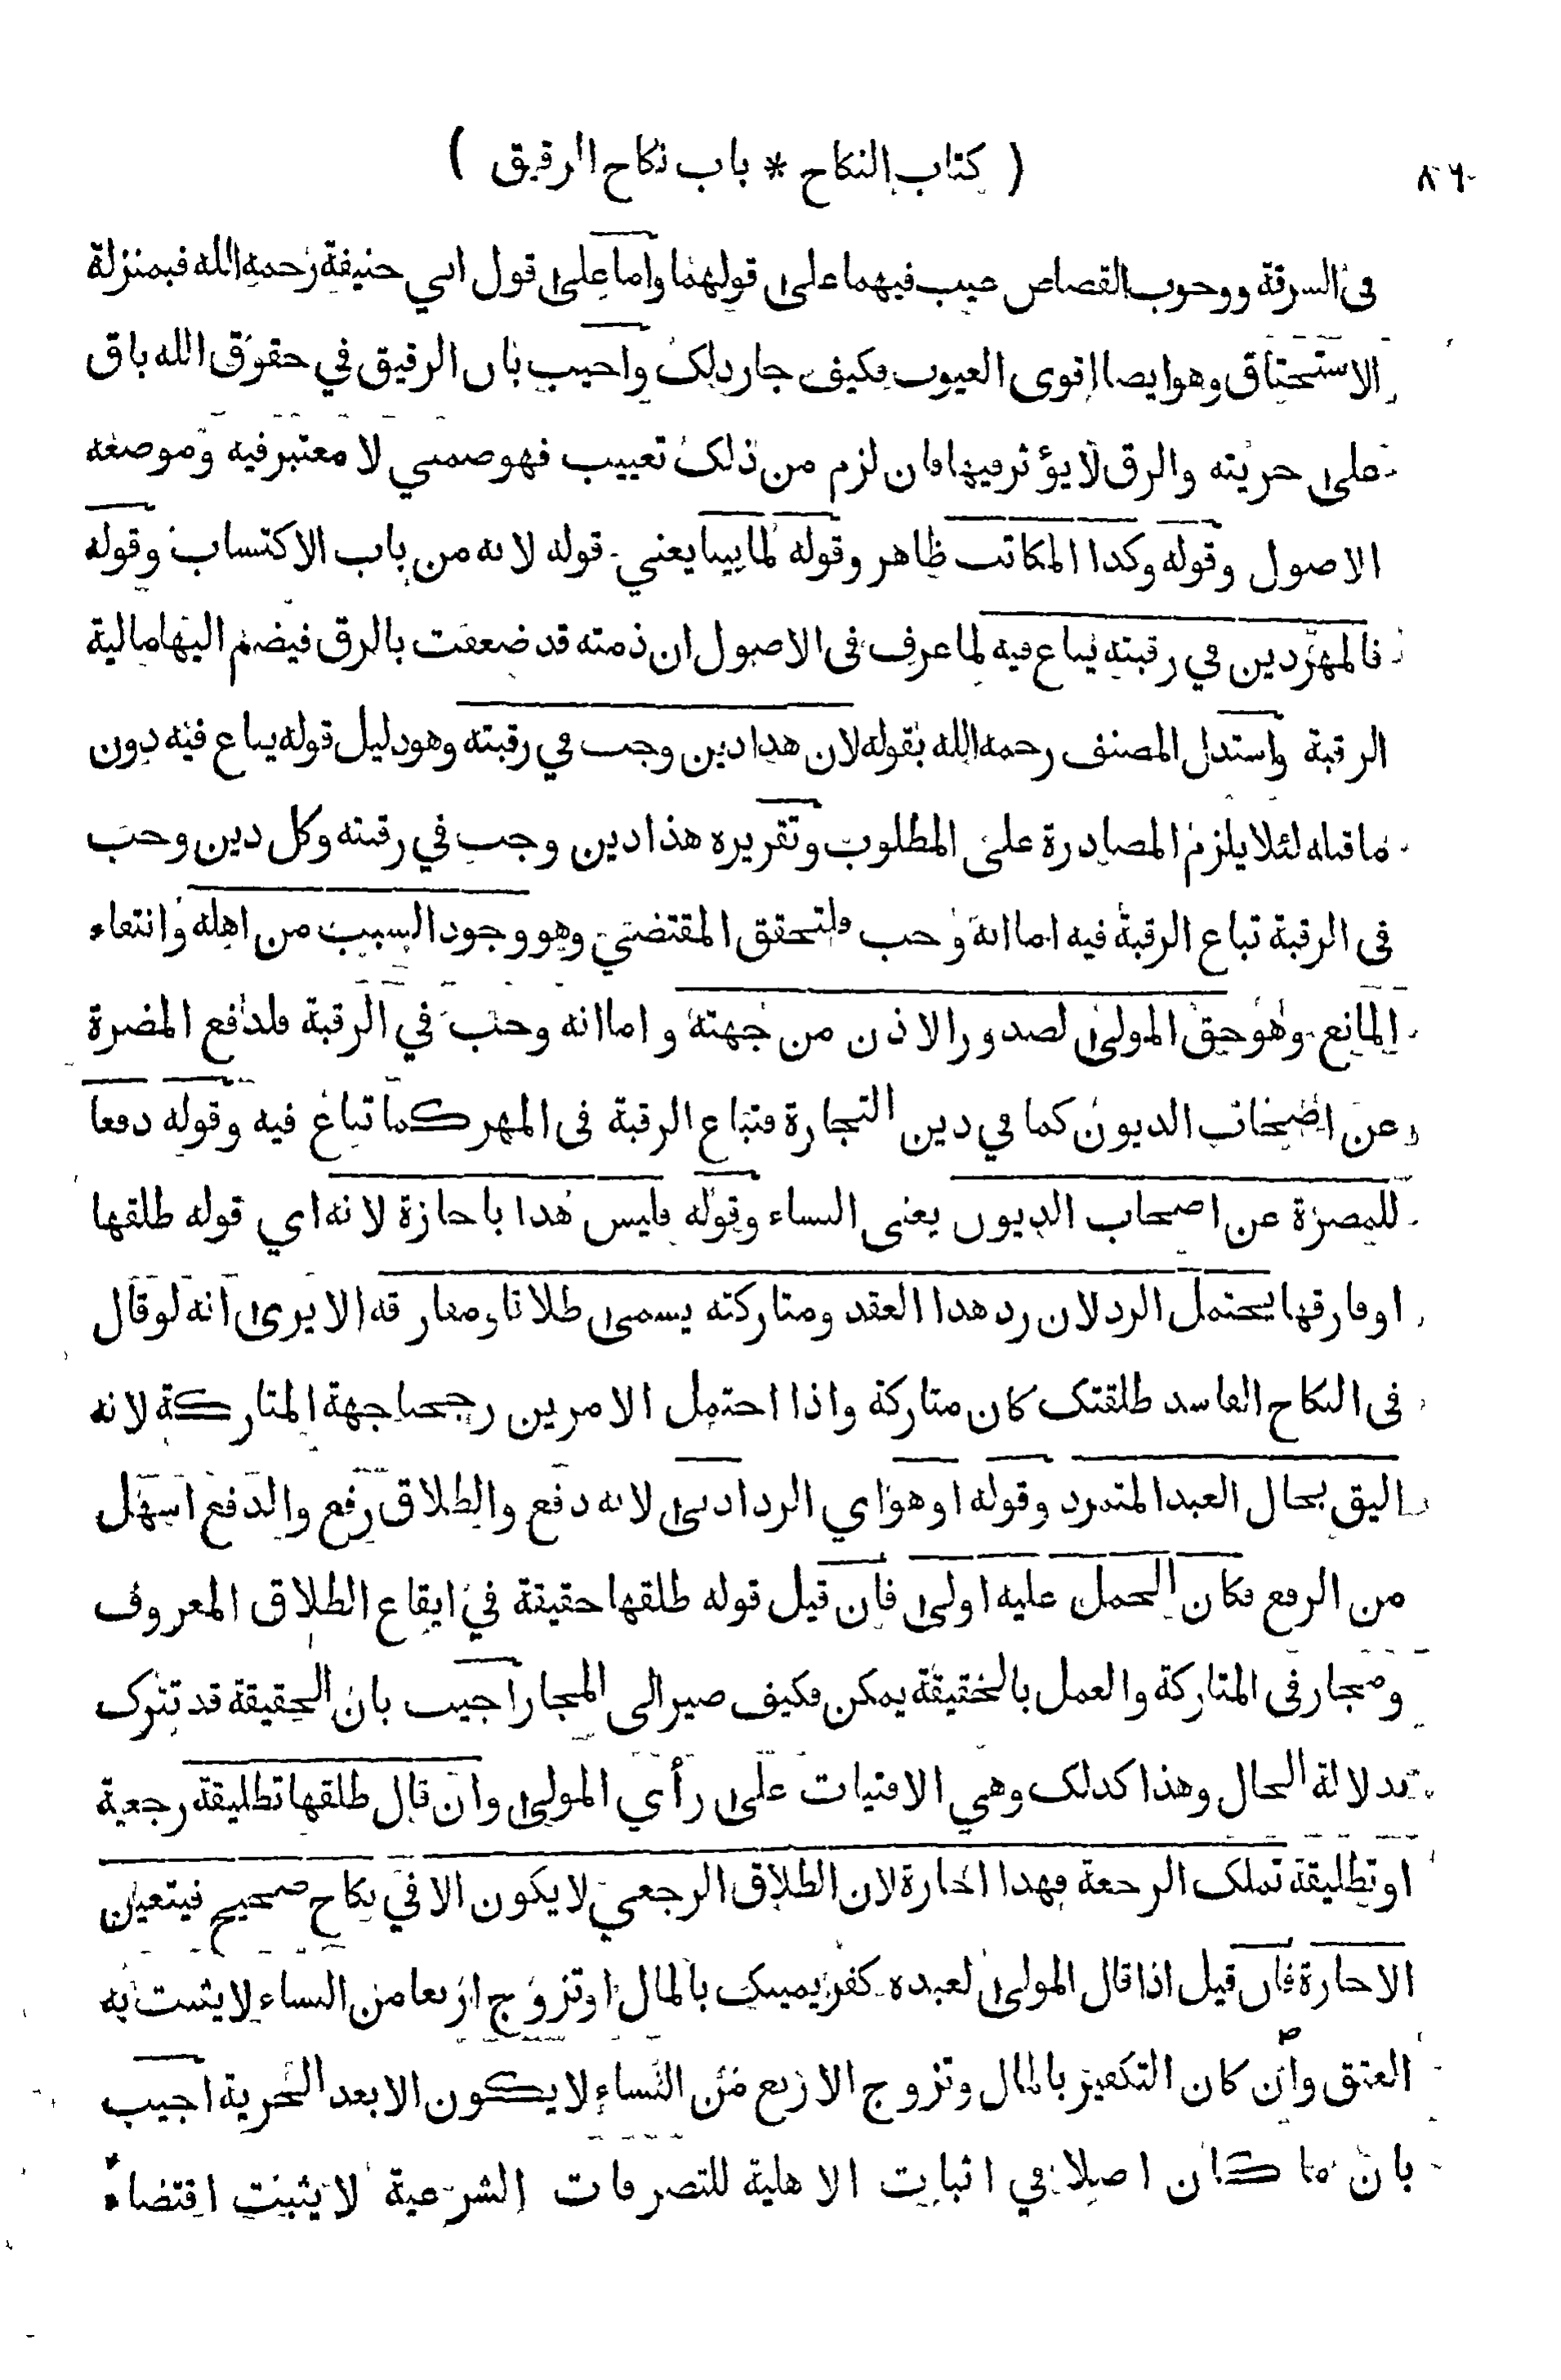 ٨٦٠ ( كتاب النكاح * باب نكاح الرقيق )
في السرقة ووجوب القصاص عيب فيهما على قولهما واما على قول ابي حنيفة رحمه الله فبمنزلة
الاستحقاق وهو ايضا اقوى العيوب فكيف جاز ذلك واجيب بان الرقيق في حقوق الله باق
على حريته والرق لا يؤثر فيها فان لزم من ذلك تعييب فهو ضمني لا معتبر فيه وموضعه
الاصول وقوله وكذا المكاتب ظاهر وقوله لما بينا يعني قوله لانه من باب الاكتساب وقوله
فالمهر دين في رقبته يباع فيه لما عرف في الاصول ان ذمته قد ضعفت بالرق فيضم اليها مالية
الرقبة واستدل المصنف رحمه الله بقوله لان هذا دين وجب في رقبته وهو دليل قوله يباع فيه دون
ما قبله لئلا يلزم المصادرة على المطلوب وتقريره هذا دين وجب في رقبته وكل دين وجب
في الرقبة تباع الرقبة فيه اما انه وجب فلتحقق المقتضي وهو وجود السبب من اهله وانتفاء
المانع وهو حق المولى لصدور الاذن من جهته واما انه وجب في الرقبة فلدفع المضرة
عن اصحاب الديون كما في دين التجارة فتباع الرقبة في المهر كما تباع فيه وقوله دفعا
للمضرة عن اصحاب الديون يعني النساء وقوله فليس هذا باجازة لانه اي قوله طلقها
او فارقها يحتمل الرد لان رد هذا العقد ومتاركته يسمى طلاقا ومفارقه الا يرى انه لو قال
في النكاح الفاسد طلقتك كان متاركة واذا احتمل الامرين رجحنا جهة المتاركة لانه
اليق بحال العبد المتمرد وقوله او هو اي الرد ادنى لانه دفع والطلاق رفع والدفع اسهل
من الرفع فكان الحمل عليه اولى فان قيل قوله طلقها حقيقة في ايقاع الطلاق المعروف
ومجاز في المتاركة والعمل بالحقيقة يمكن فكيف صير الى المجاز اجيب بان الحقيقة قد تترك
بدلالة الحال وهذا كذلك وهي الافتيات على رأي المولى وان قال طلقها تطليقة رجعية
او تطليقة تملك الرجعة فهذا اجازة لان الطلاق الرجعي لا يكون الا في نكاح صحيح فيتعين
الاجازة فان قيل اذا قال المولى لعبده كفر يمينك بالمال او تزوج اربعا من النساء لا يثبت به
العتق وان كان التكفير بالمال وتزوج الاربع من النساء لا يكون الا بعد الحرية اجيب
بان ما كان اصلا في اثبات الاهلية للتصرفات الشرعية لا يثبت اقتضاء